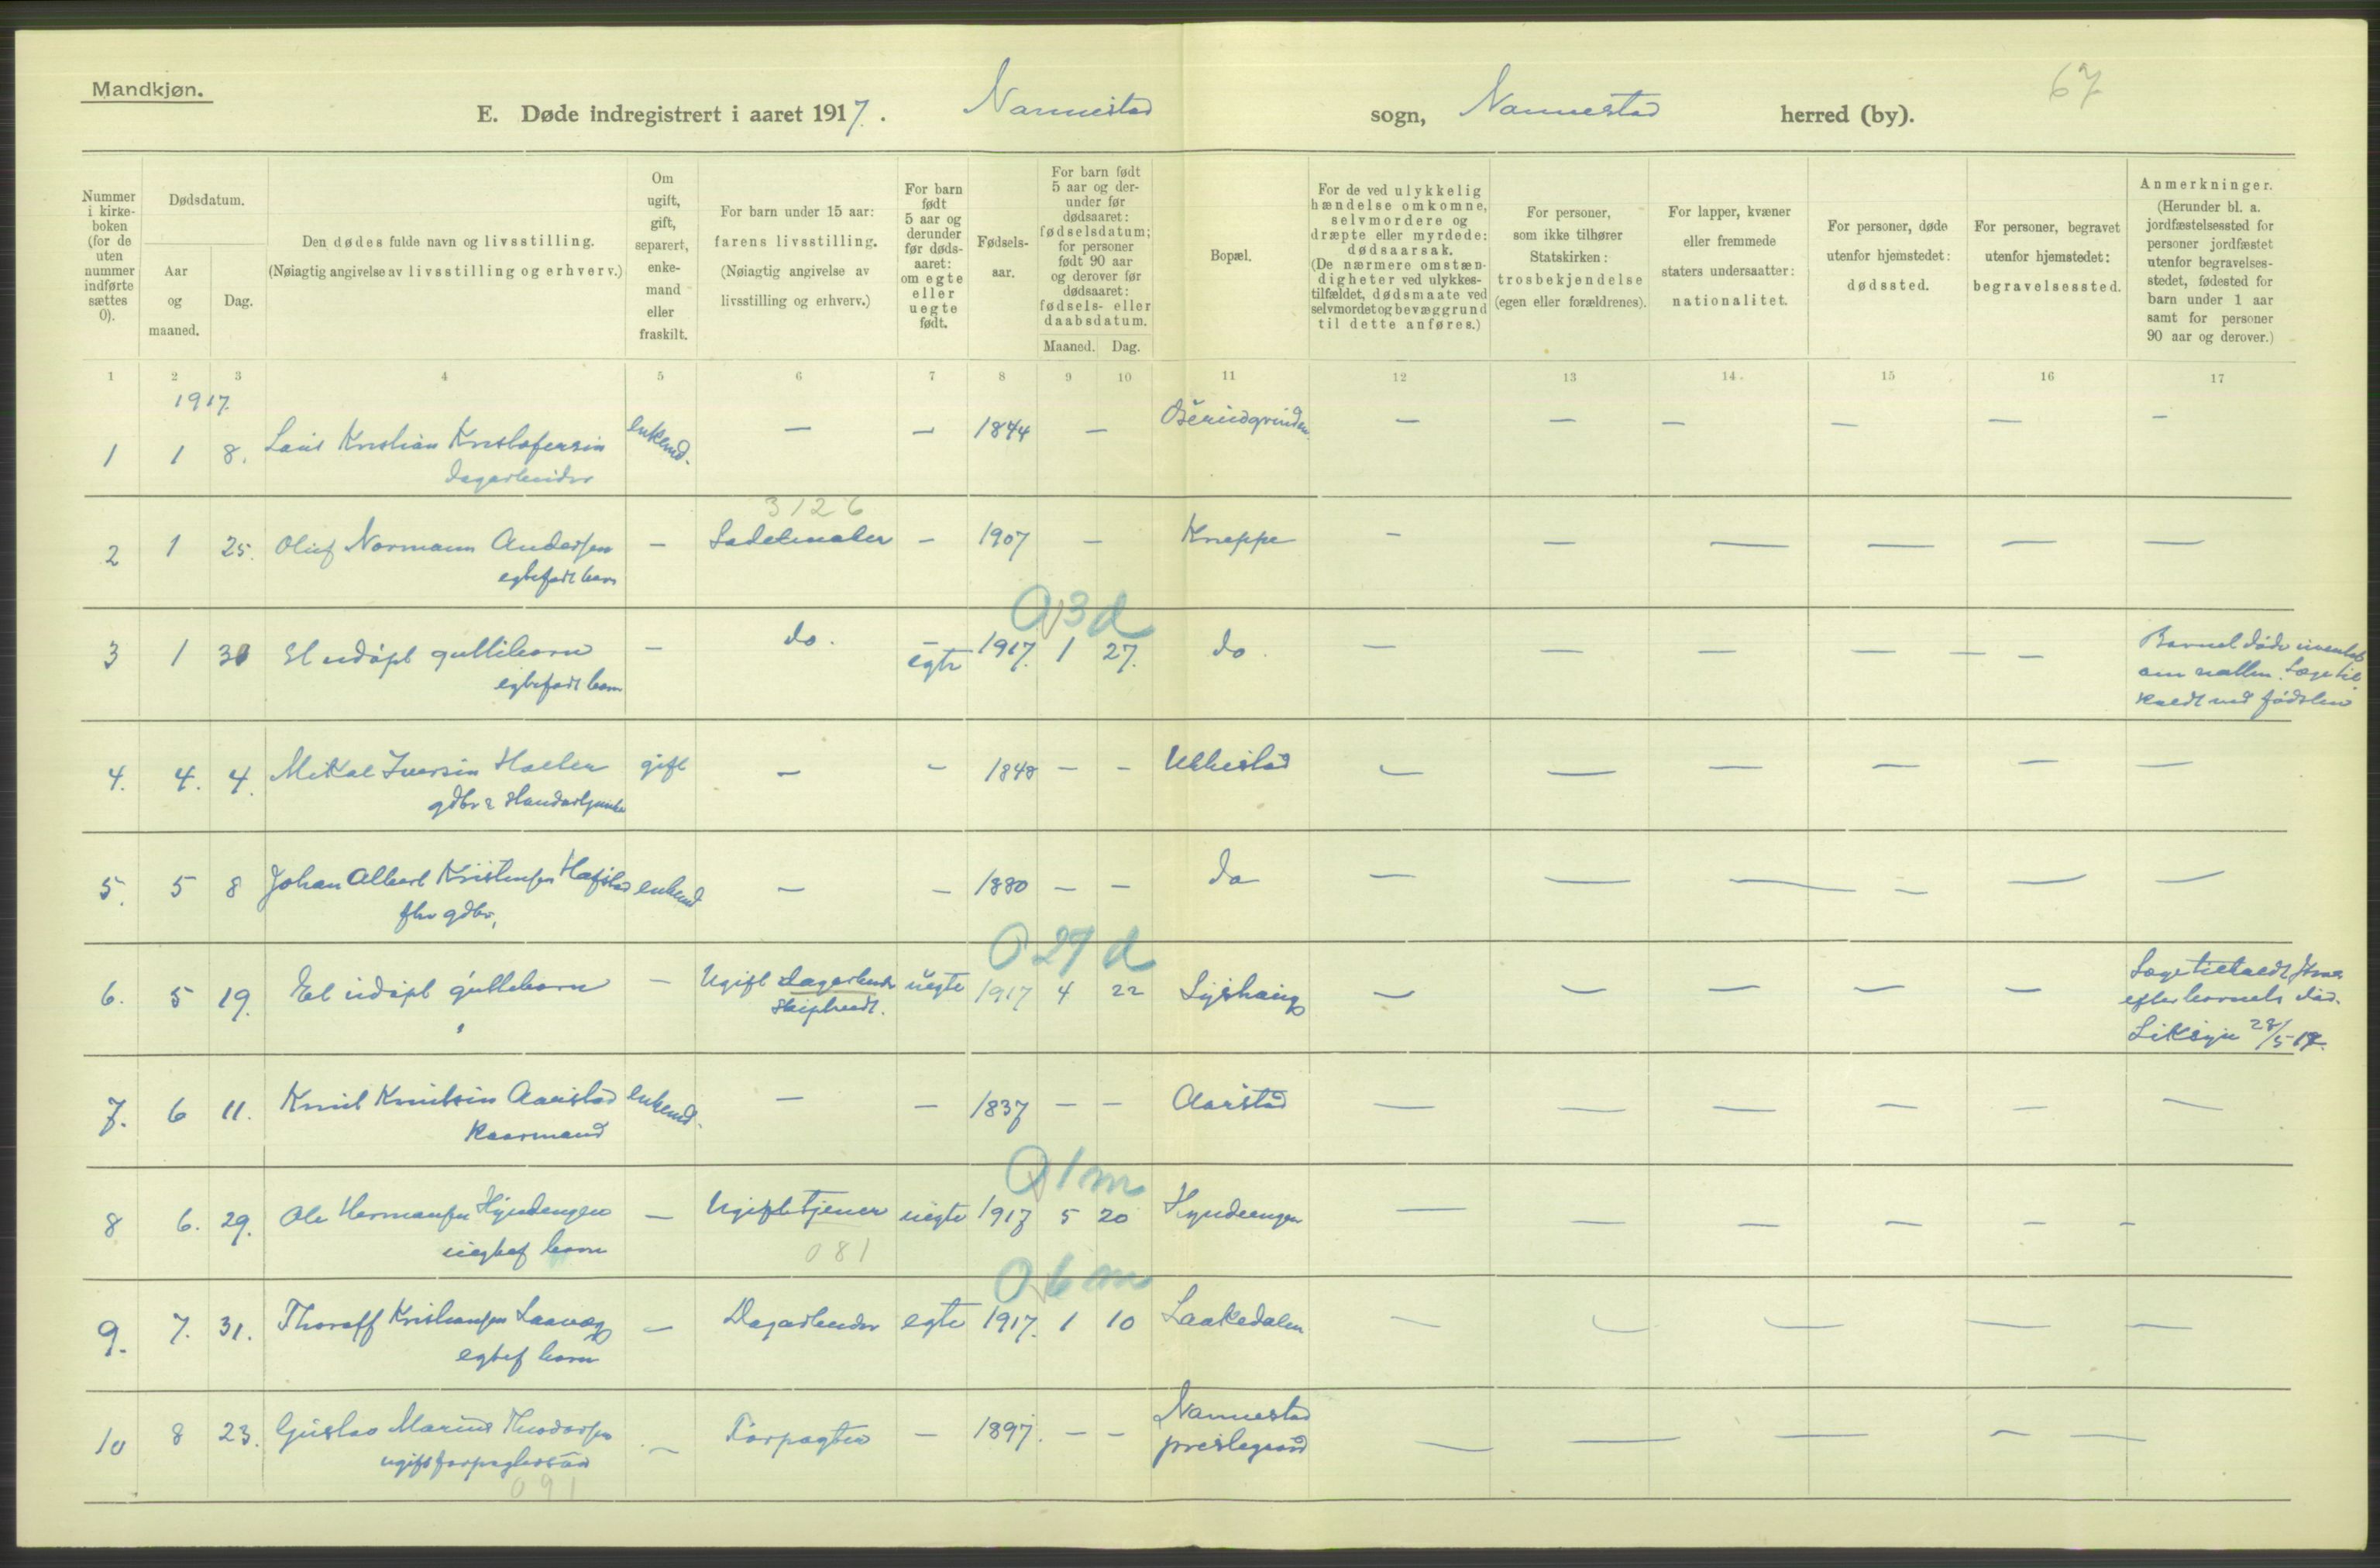 Mandkjøn.
67
E. Døde indregistrert i aaret 1917. Nannestad sogn, Nannestad herred (by).
Nummer i kirkeboken (for de uten nummer indførte sættes 0).
Dødsdatum.
Aar og maaned.
Dag.
Den dødes fulde navn og livsstilling.
(Nøiagtig angivelse av livsstilling og erhverv.)
Om ugift, gift, separert, enkemand eller fraskilt.
For barn under 15 aar:
farens livsstilling.
(Nøiagtig angivelse av livsstilling og erhverv.)
For barn født 5 aar og derunder før dødsaaret: om egte eller uegte født.
Fødselsaar.
For barn født 5 aar og derunder før dødsaaret: fødselsdatum; for personer født 90 aar og derover før dødsaaret: fødsels- eller daabsdatum.
Maaned. Dag.
Bopæl.
For de ved ulykkelig hændelse omkomne, selvmordere og dræpte eller myrdede: dødsaarsak.
(De nærmere omstændigheter ved ulykkestilfældet, dødsmaate ved selvmordet og bevæggrund til dette anføres.)
For personer, som ikke tilhører Statskirken: trosbekjendelse (egen eller forældrenes).
For lapper, kvæner eller fremmede staters undersaatter: nationalitet.
For personer, døde utenfor hjemstedet: dødssted.
For personer, begravet utenfor hjemstedet: begravelsessted.
Anmerkninger.
(Herunder bl. a. jordfæstelsessted for personer jordfæstet utenfor begravelsesstedet, fødested for barn under 1 aar samt for personer 90 aar og derover.)
1 2 3 4 5 6 7 8 9 10 11 12 13 14. 15 16 17
1917.
1 1 8. Kristian Kristofersen enkemd. — — 1844 — — — — — — —
Dagarbeider
3126
2 1 25. Oluf Normann Andersen — Sadelmaker — 1907 — Kneppe — — — — — —
egtefødt barn
0 3 d
3 1 30 Et udøpt guttebarn — do. — egte 1917. 1 27. do. — — — — — —
egtefødt barn
Barnet døde uventet
om natten. Læge til
kaldt ved fødslen
4. 4. 4. Mikal Iversen gift — — 1848 — — — — — — — —
gdbr
5. 5 8 Johan Albert Kristensen Hafstad enkemd — — 1880 — — do — — — — — —
fhv gdbr,
0 27 d
6. 5 19. Et udøpt guttebarn — Ugift Dagarbeider uegte 1917 4 22 Lyshaug — — — — —
Læge tilkaldt
efter barnets død.
Liksyn 28/5-17.
7. 6 11. Knut Knutsen Aarstad enkemd. — — 1837 — — Aarstad — — — — — —
Kaarmand
0 1 m
8 6. 29. Ole Hermansen Hyndengen — Ugift tjener uegte 1917 5 20 Hyndeengen — — — — — —
uegtef barn
081
0 6 m
9. 7. 31. Thoralf Kristiansen — Dagarbeider egte 1917. 1 10 Laakedalen — — — — —
egtef barn
10 8 23. Gustav Marius Theodorsen — Forpagter — 1897. — — Nannestad — — — — —
ugift forpagtersøn
prestegaard
091